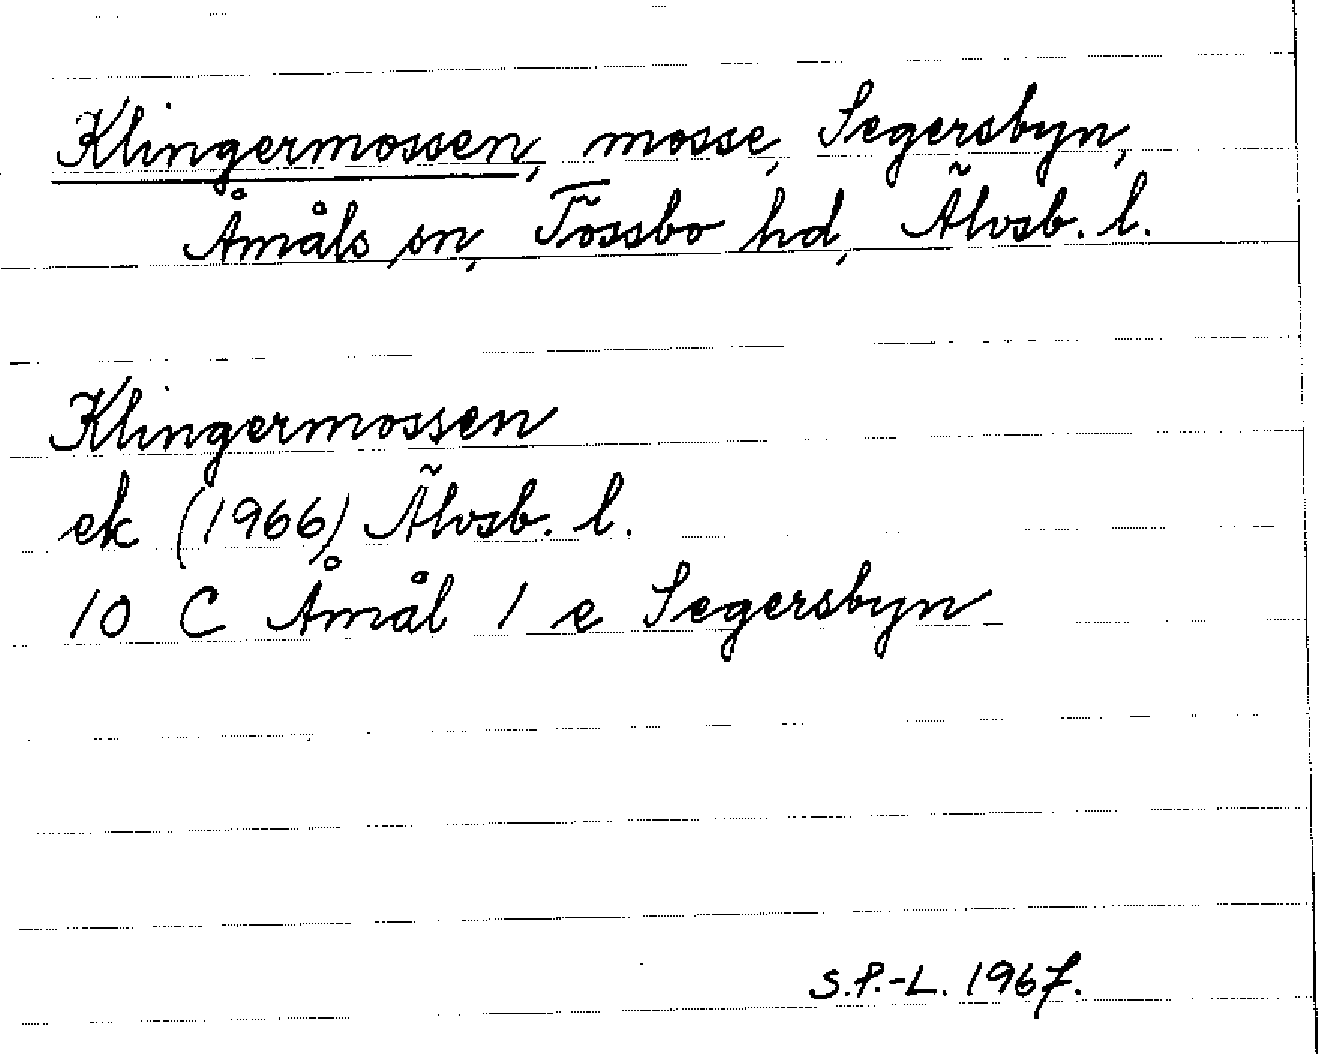 Klingermossen, mosse, Segersbyn,
Åmåls sn, Tössbo hd, Älvsb. l.
Klingermossen
ek (1966) Älvsb. l.
10 C Åmål 1 e Segersbyn
S.P.-L. 1967.